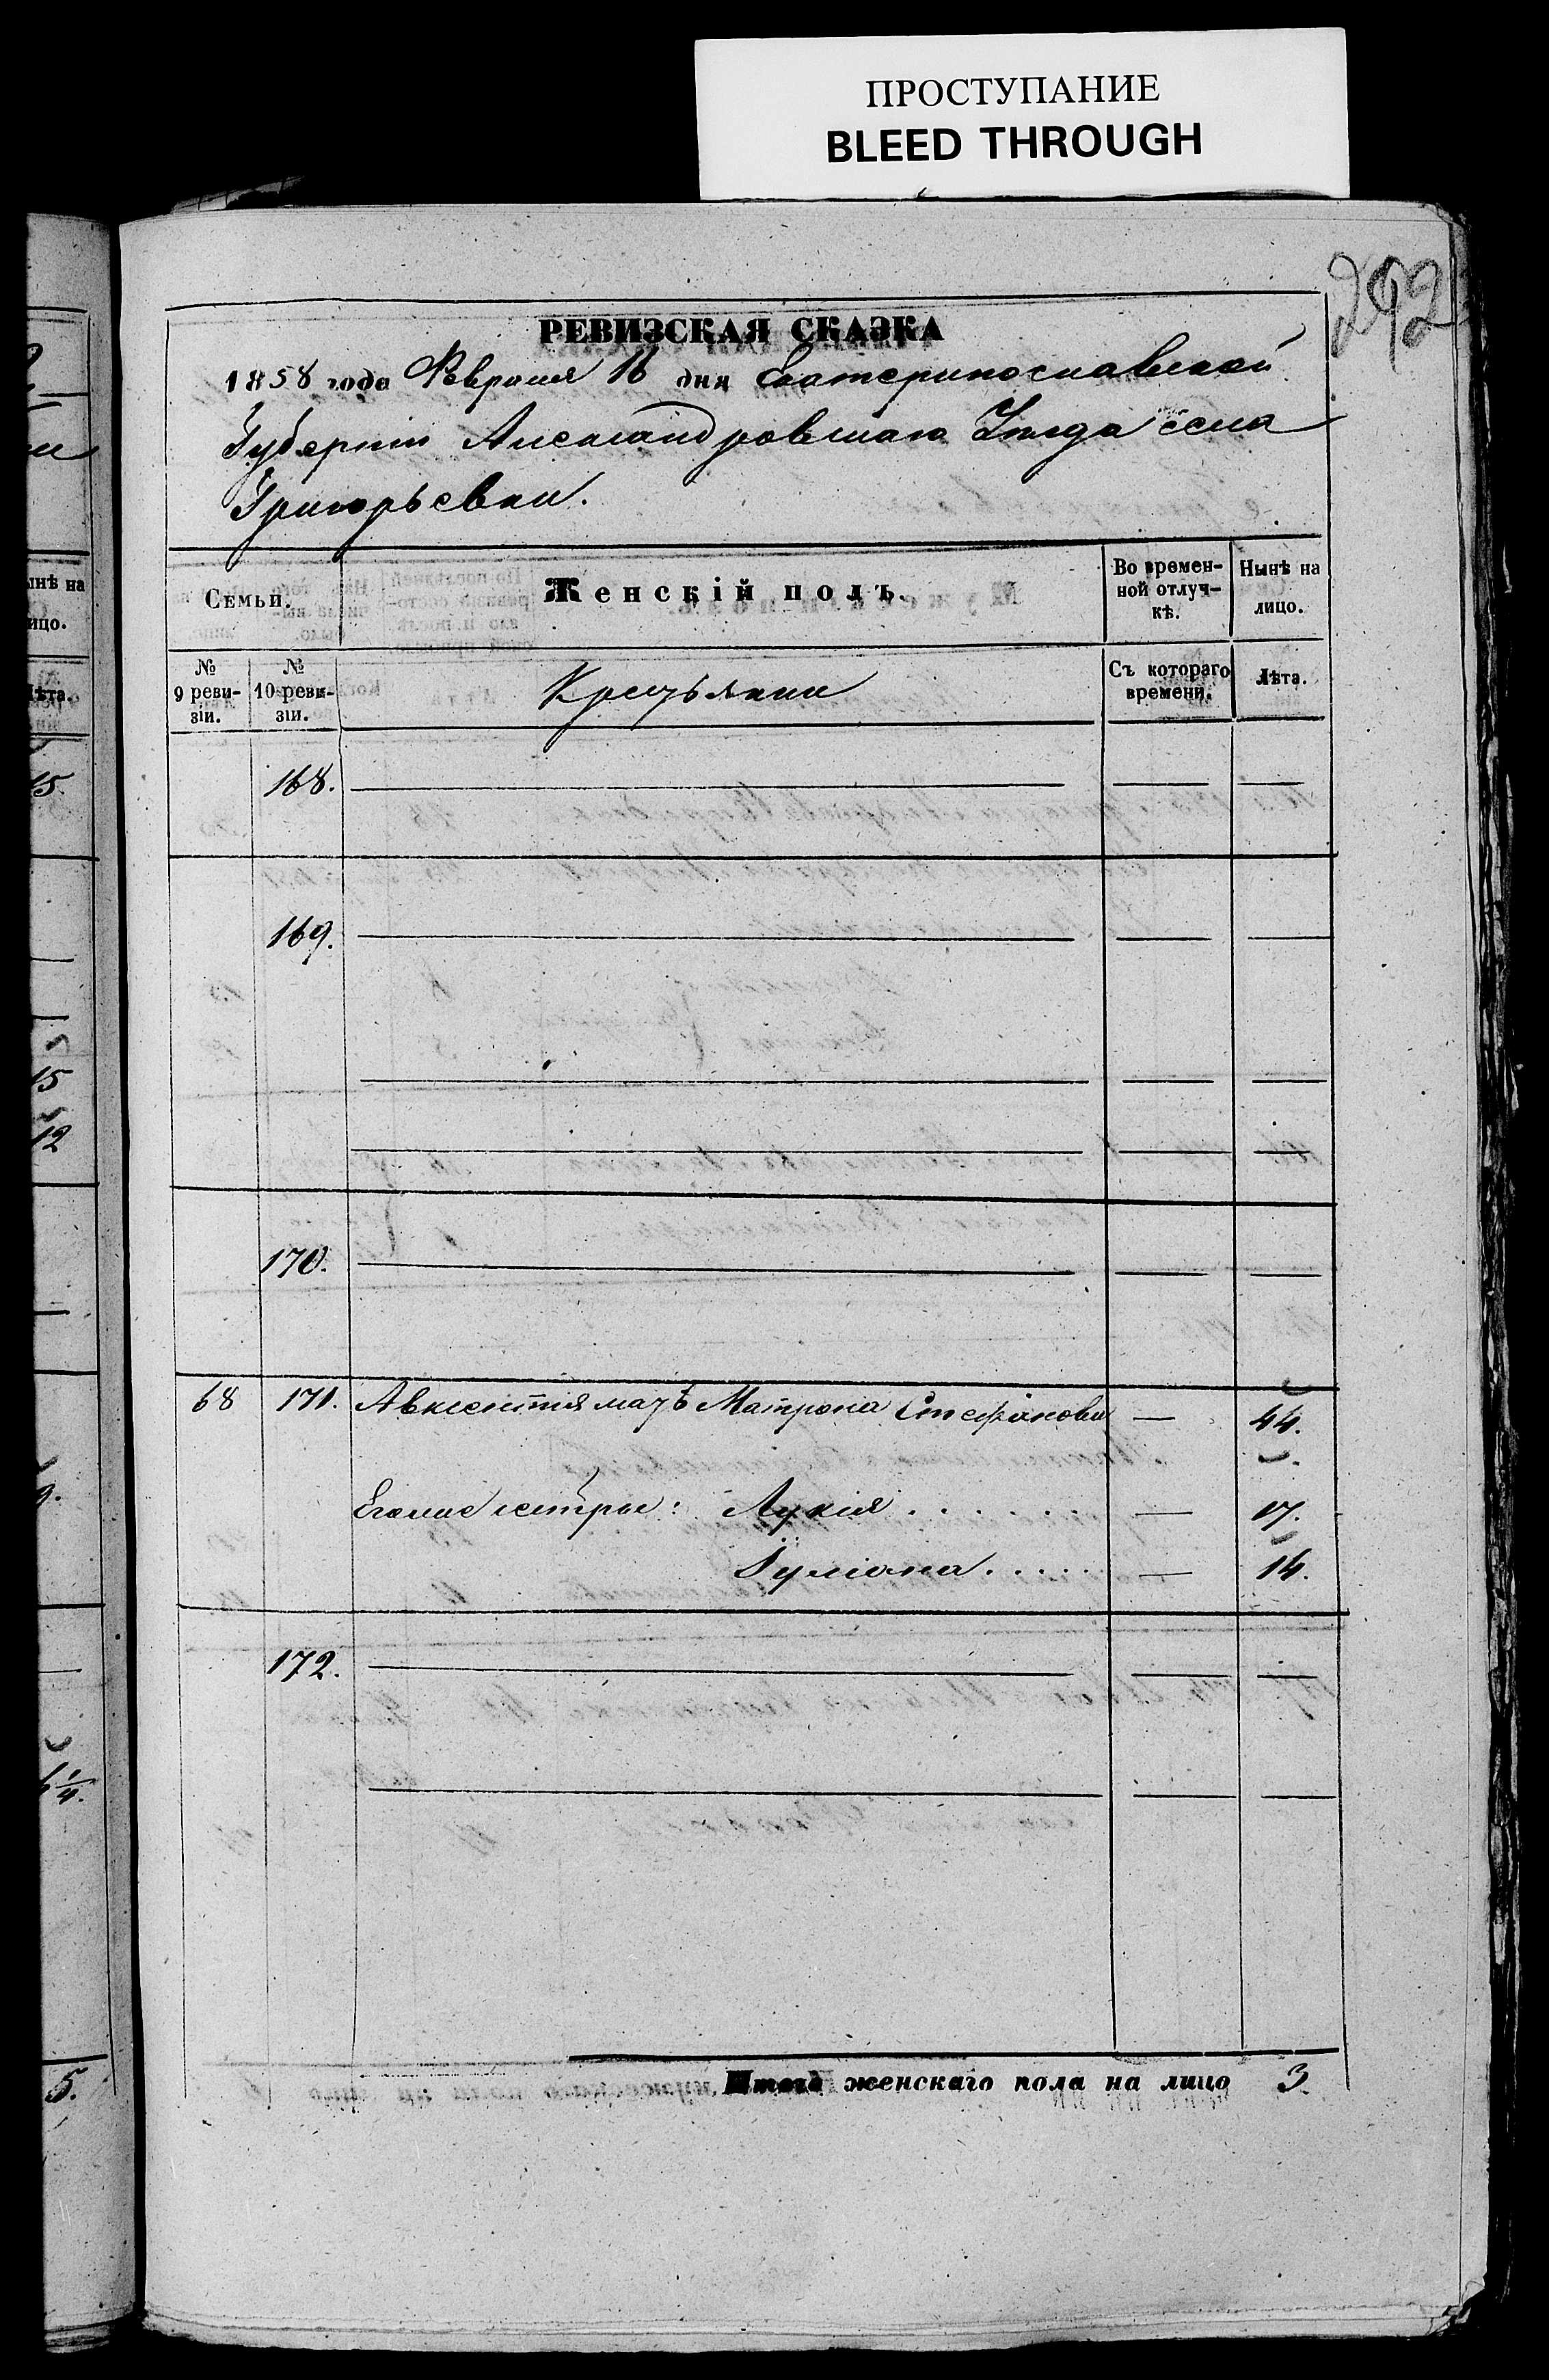 ПРОСТУПАНИЕ
BLEED THROUGH
292
РЕВИЗСКАЯ СКАЗКА
1858 года Февраля 16 дня Екатеринославской
Губерніи Александровскаго Уѣзда села
Григорьевки.
Семьи. Женскій полъ. Во временной отлучкѣ. Нынѣ на лицо.
№ 9 ревизіи. № 10 ревизіи. Крестьяне Съ котораго времени. Лѣта.
168. — — —
169. — — —
— — —
— — —
170. — — —
68 171. Авксентія мать Матрона Стефанова — 44.
Его же сестры: Лукія . . . . . — 17.
Іуліана . . . . . — 14.
172. — — —
— — —
Итогъ женскаго пола на лицо 3.
ынѣ на
ицо.
Лѣта.
15.
15
12
9.
1/4.
5.